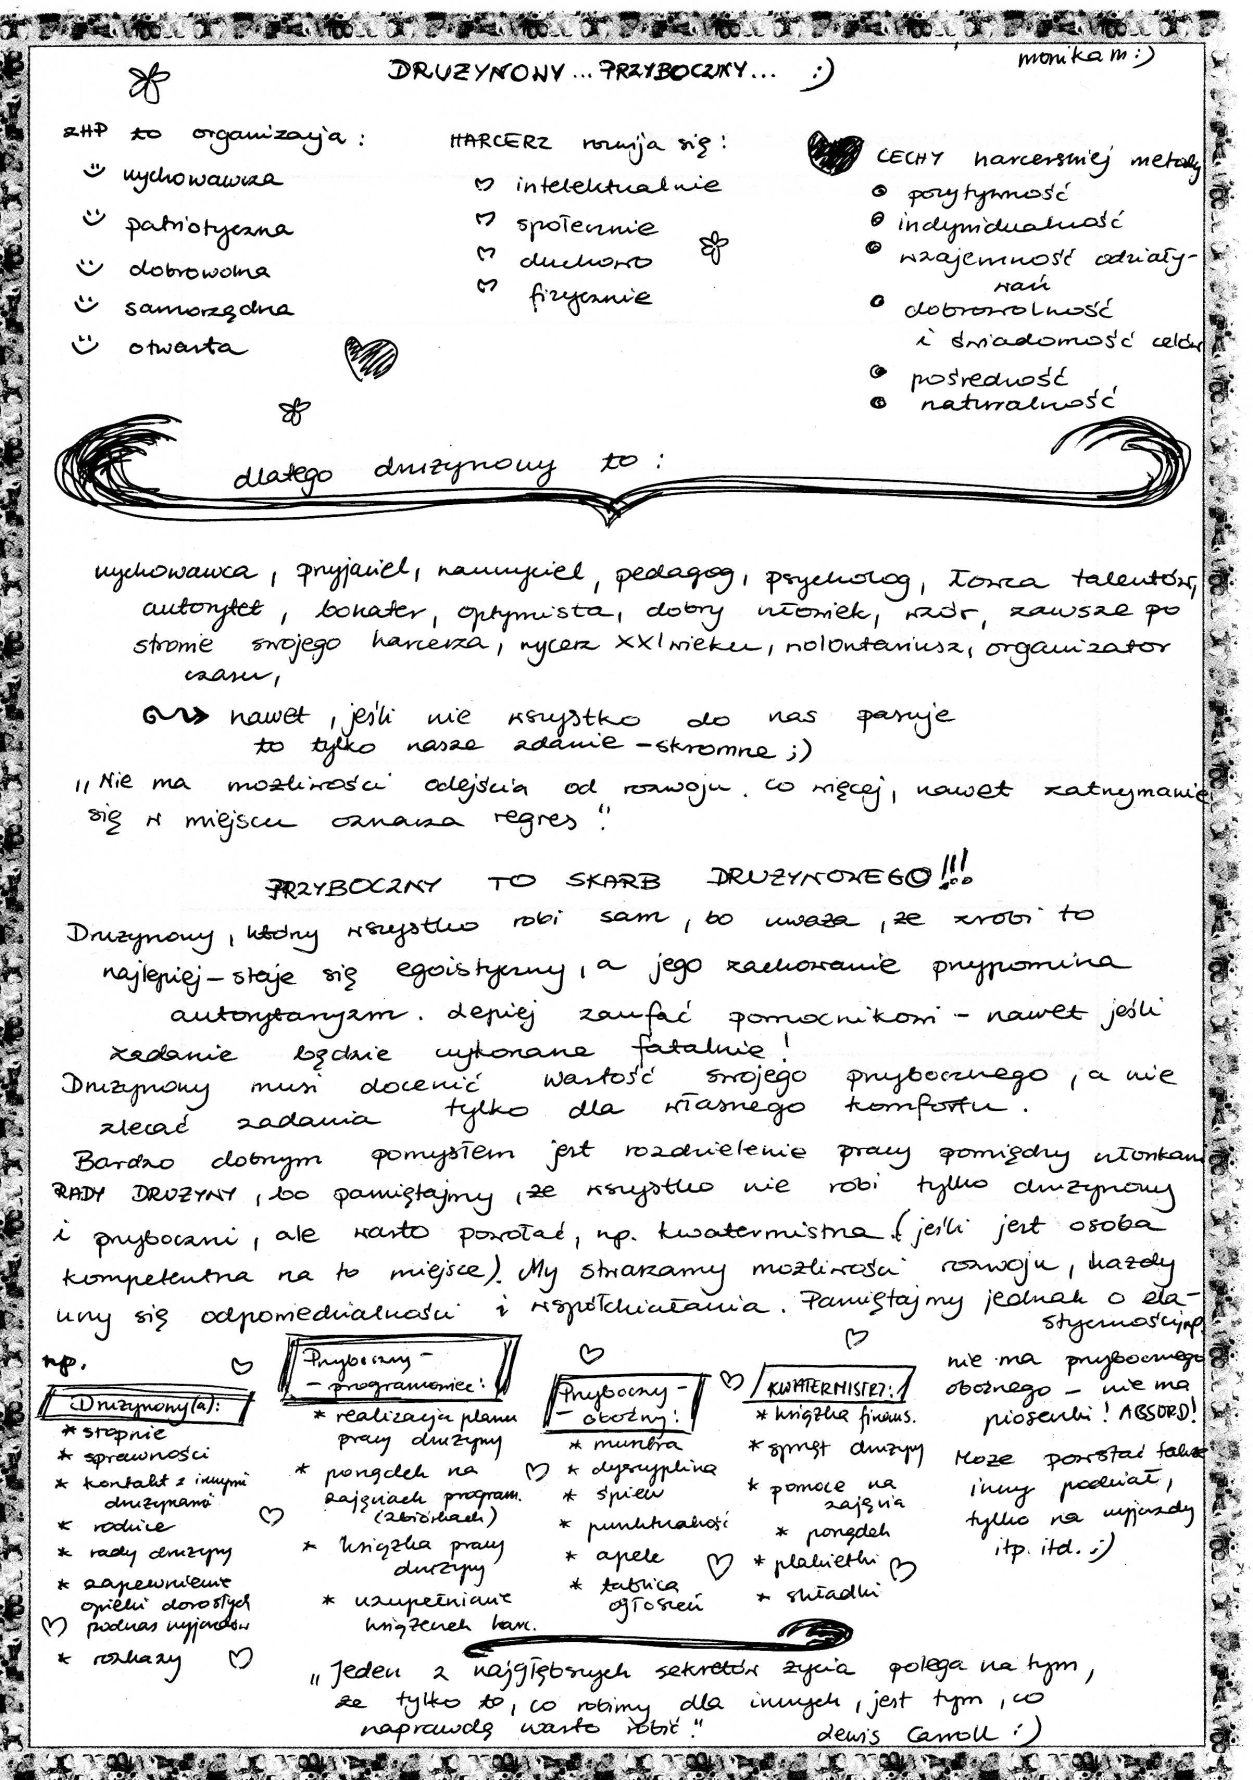 monika m :)
DRUŻYNOWY... PRZYBOCZNY... :)
ZHP to organizacja:
wychowawcza
patriotyczna
dobrowolna
samorządna
otwarta
HARCERZ rozwija się:
intelektualnie
społecznie
duchowo
fizycznie
CECHY harcerskiej metody
pozytywność
indywidualność
wzajemność odziały-
wań
dobrowolność
i świadomość celów
pośredność
naturalność
dlatego drużynowy to:
wychowawca, przyjaciel, nauczyciel, pedagog, psycholog, łowca talentów,
autorytet, bohater, optymista, dobry człowiek, wzór, zawsze po
stronie swojego harcerza, rycerz XXI wieku, wolontariusz, organizator
czasu,
nawet, jeśli nie wszystko do nas pasuje
to tylko nasze zdanie - skromne ;)
„Nie ma możliwości odejścia od rozwoju. Co więcej, nawet zatrzymanie
się w miejscu oznacza regres"
PRZYBOCZNY TO SKARB DRUŻYNOWEGO!!!
Drużynowy, który wszystko robi sam, bo uważa, że zrobi to
najlepiej - staje się egoistyczny, a jego zachowanie przypomina
autorytaryzm. Lepiej zaufać pomocnikom - nawet jeśli
zadanie będzie wykonane fatalnie!
Drużynowy musi docenić wartość swojego przybocznego, a nie
zlecać zadania tylko dla własnego komfortu.
Bardzo dobrym pomysłem jest rozdzielenie pracy pomiędzy członkami
RADY DRUŻYNY, bo pamiętajmy, że wszystko nie robi tylko drużynowy
i przyboczni, ale warto powołać, np. kwatermistrza (jeśli jest osoba
kompetentna na to miejsce). My stwarzamy możliwości rozwoju, każdy
uczy się odpowiedzialności i współdziałania. Pamiętajmy jednak o ela-
styczności, np.
nie ma przybocznego
oboźnego - nie ma
piosenki! ABSURD!
Może powstać także
inny podział,
tylko na wyjazdy
itp. itd. ;)
np.
Drużynowy(a):
* stopnie
* sprawności
* kontakt z innymi
drużynami
* rodzice
* rady drużyny
* zapewnienie
opieki dorosłych
podczas wyjazdów
* rozkazy
Przyboczny -
- programowiec:
* realizacja planu
pracy drużyny
* porządek na
zajęciach program.
(zbiórkach)
* książka pracy
drużyny
* uzupełnianie
książeczek harc.
Przyboczny -
- oboźny:
* musztra
* dyscyplina
* śpiew
* punktualność
* apele
* tablica
ogłoszeń
KWATERMISTRZ:
* książka finans.
* sprzęt drużyny
* pomoce na
zajęcia
* porządek
* plakietki
* składki
„Jeden z najgłębszych sekretów życia polega na tym,
że tylko to, co robimy dla innych, jest tym, co
naprawdę warto robić"
Lewis Carroll :)